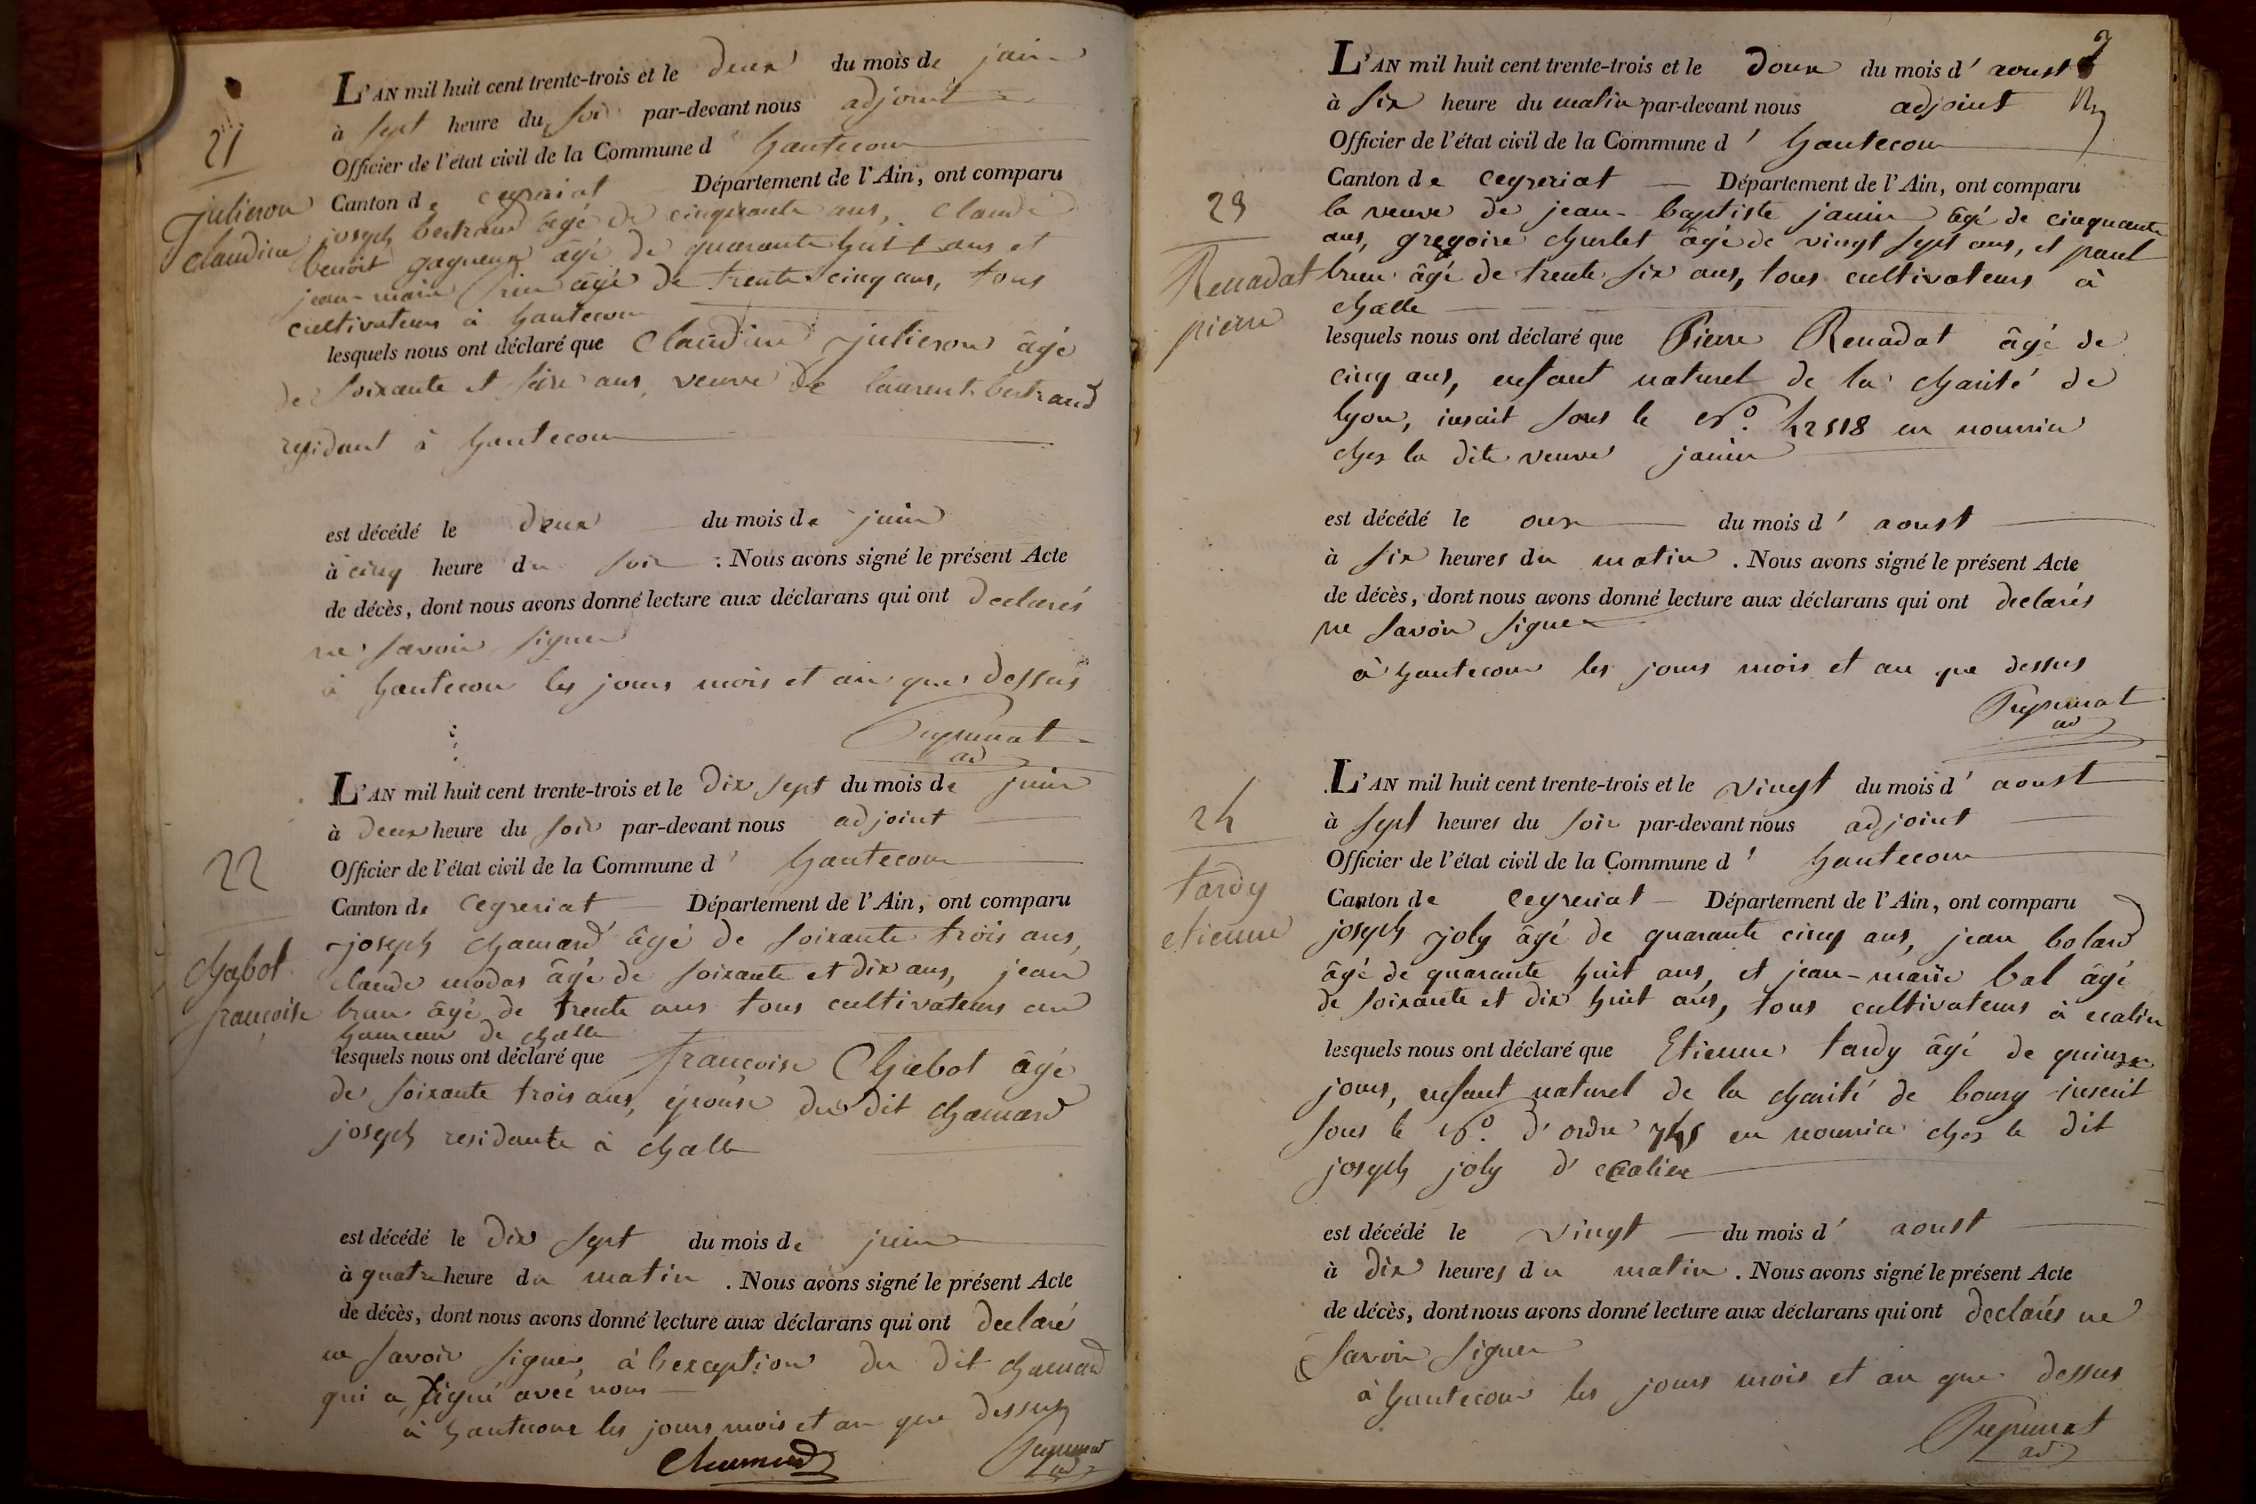 21
julieron
claudine
L'AN mil huit cent trente-trois et le deux du mois de juin
à sept heure du soir par-devant nous adjoint
Officier de l'état civil de la Commune d' hautecour
Canton de ceyzeriat Département de l'Ain, ont comparu
joseph bertrand âgé de cinquante ans, claude
benoit gagneux âgé de quarante huit ans et
jean-marie âgé de trente cinq ans, tous
cultivateurs à hautecour
lesquels nous ont déclaré que Claudine julieron âgé
de soixante et seize ans, veuve de laurent bertrand
residant à hautecour
est décédé le deux du mois de juin
à cinq heure du soir . Nous avons signé le présent Acte
de décès, dont nous avons donné lecture aux déclarans qui ont declarés
ne savoir signer
à hautecour les jours mois et an que dessus
ad
22
chabot
françoise
L'AN mil huit cent trente-trois et le dix sept du mois de juin
à deux heure du soir par-devant nous adjoint
Officier de l'état civil de la Commune d' hautecour
Canton de ceyzeriat Département de l'Ain, ont comparu
joseph chamard âgé de soixante trois ans,
claude modas âgé de soixante et dix ans, jean
brun âgé de trente ans tous cultivateurs au
hameau de challe
lesquels nous ont déclaré que françoise Chabot âgé
de soixante trois ans, épouse du dit chamard
joseph residante à challe
est décédé le dix sept du mois de juin
à quatre heure du matin . Nous avons signé le présent Acte
de décès, dont nous avons donné lecture aux déclarans qui ont declaré
ne savoir signer, à l'exception du dit chamard
qui a signé avec nous
à hautecour les jours mois et an que dessus
Chamard
ad
23
Renadat
pierre
L'AN mil huit cent trente-trois et le douze du mois d' aoust
à six heure du matin par-devant nous adjoint
Officier de l'état civil de la Commune d' hautecour
Canton de ceyzeriat Département de l'Ain, ont comparu
la veuve de jean-baptiste janin âgé de cinquante
ans, gregoire churlet âgé de vingt sept ans, et paul
brun âgé de trente six ans, tous cultivateurs à
challe
lesquels nous ont déclaré que Pierre Renadat âgé de
cinq ans, enfant naturel de la charité de
lyon, inscrit sous le No. 42518 en nourrice
chez la dite veuve janin
est décédé le onze du mois d' aoust
à six heures du matin . Nous avons signé le présent Acte
de décès, dont nous avons donné lecture aux déclarans qui ont declarés
ne savoir signer
à hautecour les jours mois et an que dessus
ad
24
tardy
etienne
L'AN mil huit cent trente-trois et le vingt du mois d' aoust
à sept heures du soir par-devant nous adjoint
Officier de l'état civil de la Commune d' hautecour
Canton de ceyzeriat Département de l'Ain, ont comparu
joseph joly âgé de quarante cinq ans, jean bolard
âgé de quarante huit ans, et jean-marie bal âgé
de soixante et dix huit ans, tous cultivateurs à
lesquels nous ont déclaré que Etienne tardy âgé de quinze
jours, enfant naturel de la charité de bourg inscrit
sous le No. d'ordre 745 en nourrice chez le dit
joseph joly
est décédé le vingt du mois d' aoust
à dix heures du matin . Nous avons signé le présent Acte
de décès, dont nous avons donné lecture aux déclarans qui ont declarés ne
savoir signer
à hautecour les jours mois et an que dessus
ad